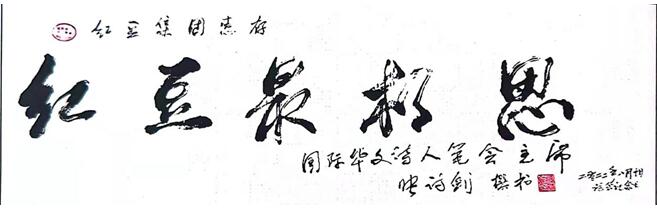 红豆集团惠存
红豆最相思
国际华文诗人笔会主席
张诗剑 撰书
二〇二二年八月